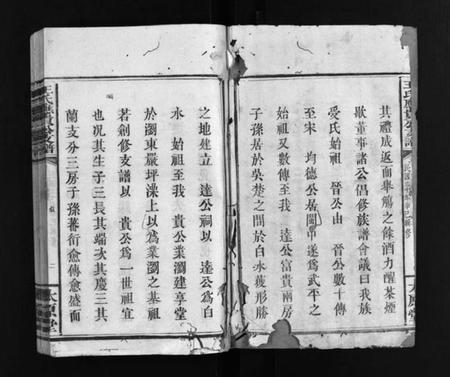 王氏應貴公支譜
其禮成返面舉觴之餘酒力醒茶煙
歇董事諸公倡修族譜會議曰我族
受氏始祖 晉公由 晉公數十傳
至宋 均德公居閩 遂爲武平之
始祖又數傳至我 達公富貴兩房
子孫居於吳楚之間於白水獲形勝
太原堂
之地建立 達公祠以 達公爲白
水 始祖至我 貴公業瀏建享堂
於瀏東嚴坪澡上以爲業瀏之基祖
若創修支譜以 貴公爲一世祖宜
也况其生子三長其端次其慶三其
蘭支分三房子孫蕃衍愈傳愈盛面
王氏應貴公支譜
太原堂